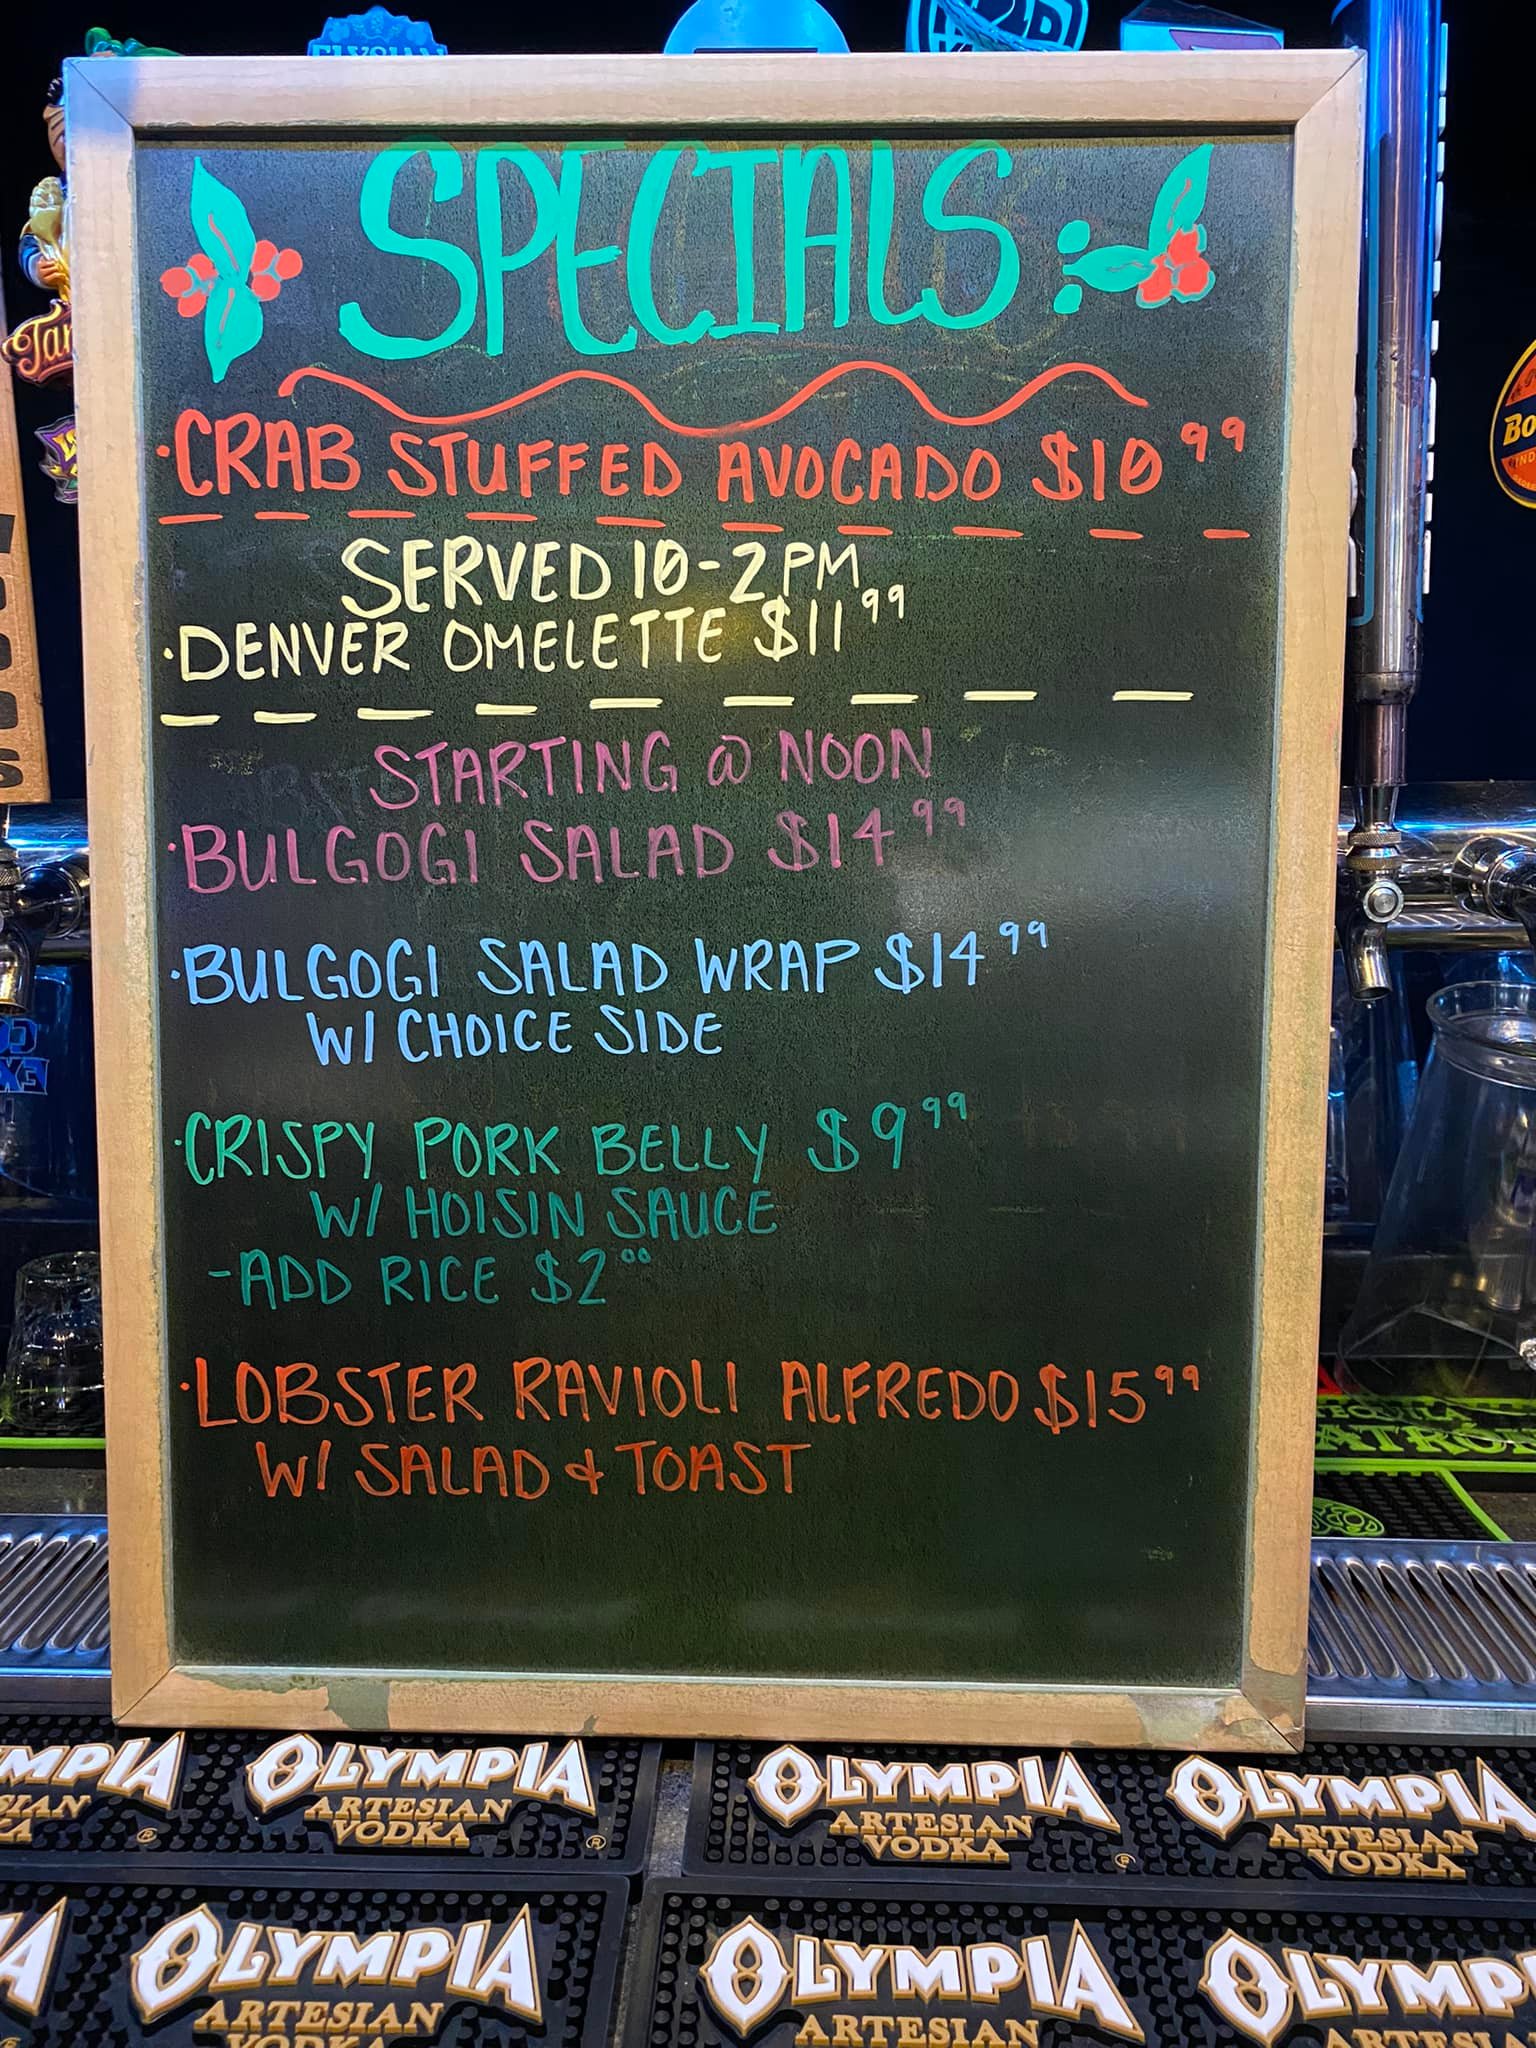 ELYSIAN
SPECIALS:
·CRAB STUFFED AVOCADO $10⁹⁹
SERVED 10-2PM
·DENVER OMELETTE $11⁹⁹
STARTING @ NOON
·BULGOGI SALAD $14⁹⁹
·BULGOGI SALAD WRAP $14⁹⁹
W/ CHOICE SIDE
·CRISPY PORK BELLY $9⁹⁹
W/ HOISIN SAUCE
-ADD RICE $2⁰⁰
·LOBSTER RAVIOLI ALFREDO $15⁹⁹
W/ SALAD & TOAST
OLYMPIA
ARTESIAN
VODKA
®
OLYMPIA
ARTESIAN
VODKA
®
OLYMPIA
ARTESIAN
VODKA
OLYMPIA
ARTESIAN
VODKA
OLYMPIA
ARTESIAN